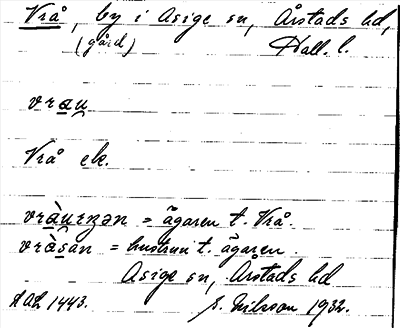 Vrå, by i Asige sn, Årstads hd,
(gård) Hall. l.
vrau̯
Vrå ek.
vràu̯rn̥ən = ägaren t. Vrå.
vràsan = hustrun t. ägaren.
Asige sn, Årstads hd
1443. Nilsson 1932.